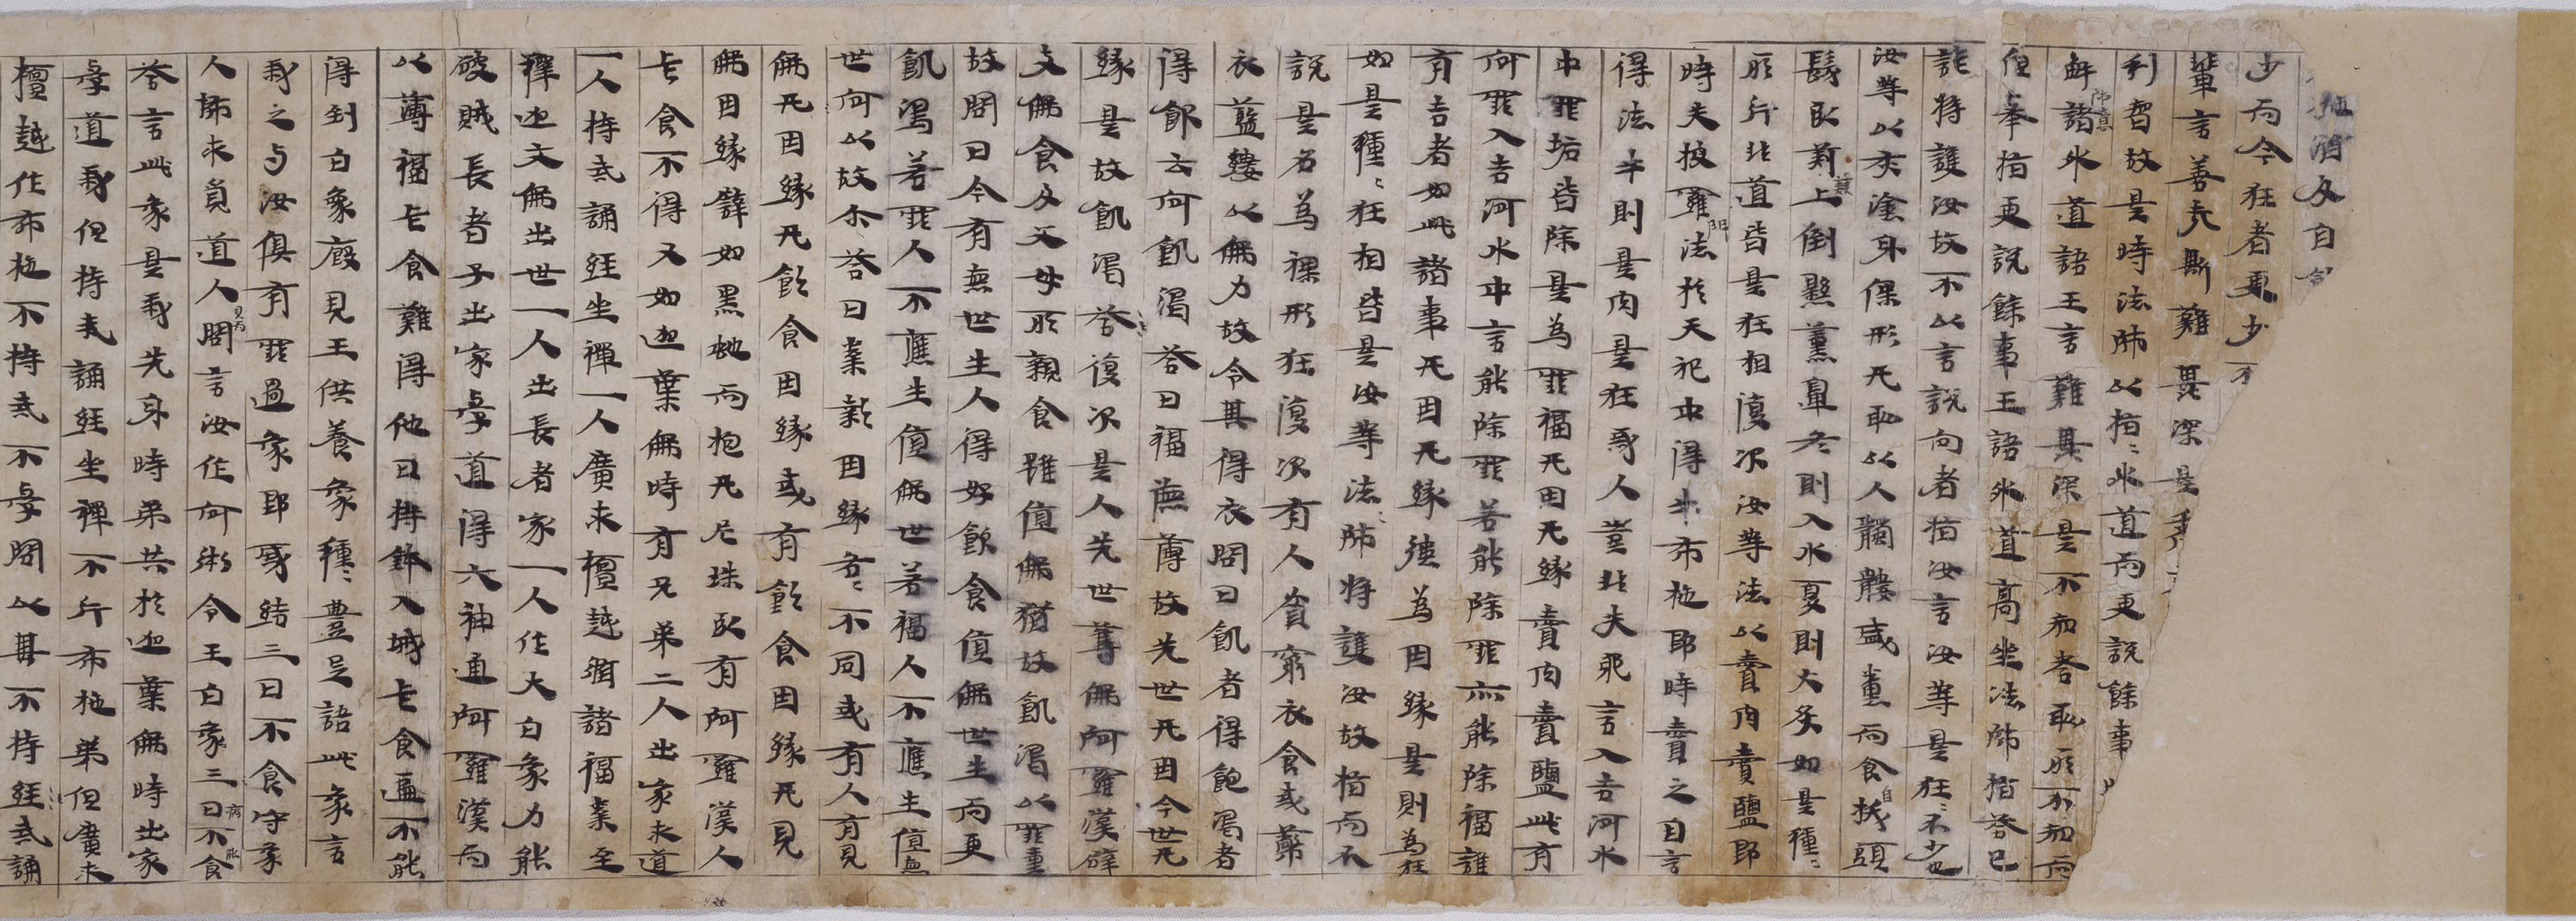 又自含
少而今狂者更少不
輩言善夫斯難甚深是
利智故是時法師以指〻外道而更說餘事
解師意諸外道語王言難甚深是不知答恥所不知而
但舉指更說餘事王語外道高坐法師指答已
訖將護汝故不以言說向者指汝言汝等是狂〻不少也
汝等以灰塗身倮形无恥以人髑髏盛糞而食自拔頭
髮臥荊棘上倒懸薰鼻冬則入水夏則火炙如是種〻
所行非道皆是狂相復次汝等法以賣肉賣鹽即
時失披羅門法於天祀中得牛布施即時賣之自言
得法牛則是肉是狂惑人豈非失耶言入吉河水
中罪垢皆除是為罪福无因无緣賣肉賣鹽此有
何罪入吉河水中言能除罪若能除罪亦能除福誰
有吉者如此諸事无因无緣強為因緣是則為狂
如是種〻狂相皆是汝等法〻師將護汝故指而不
說是名為裸形狂復次有人貧窮衣食或弊
衣藍縷以佛力故令其得衣問曰飢者得飽渴者
得飲云何飢渴答曰福德薄故先世无因今世无
緣是故飢渴答復次是人先世奪佛阿羅漢辟
支佛食及父母所親食雖值佛猶故飢渴以罪重
故問曰今有無世生人得好飲食值佛世生而更
飢渴若罪人不應生值佛世若福人不應生值無
世何以故尒答曰業報因緣各〻不同或有人有見
佛无因緣无飲食因緣或有飲食因緣无見
佛因緣辟如黑虵而抱凡尼珠臥有阿羅漢人
乞食不得又如迦葉佛時有兄弟二人出家求道
一人持戒誦經坐禪一人廣求檀越脩諸福業至
釋迦文佛出世一人出長者家一人作大白象力能
破賊長者子出家學道得六神通阿羅漢而
以薄福乞食難得他日持鉢入城乞食遍不能
得到白象廐見王供養象種〻豐足語此象言
我之与汝俱有罪過象即感結三日不食守象
人怖求覓道人見而問言汝作何術令王白象三日病不能食
答言此象是我先身時弟共於迦葉佛時出家
學道我但持戒誦經坐禪不行布施弟但廣求
檀越作布施不持戒不學問以其不持戒誦